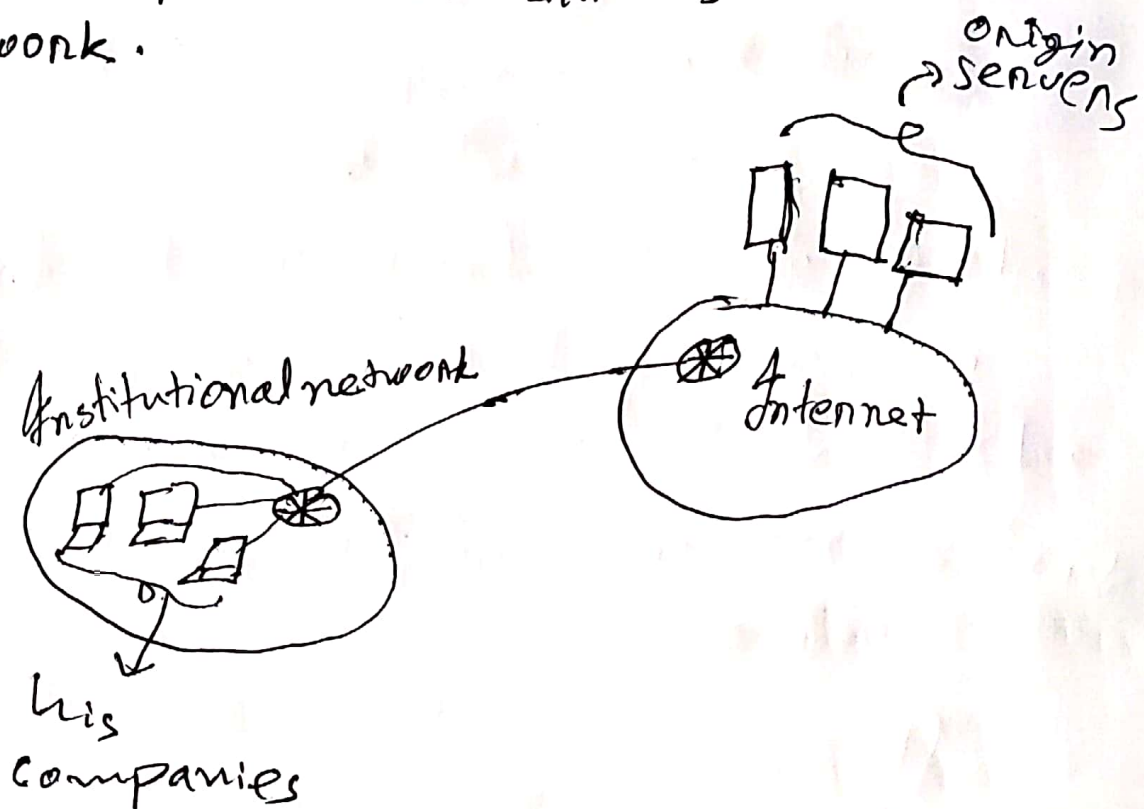 work.
Origin
servers
Institutional network
Internet
his
companies